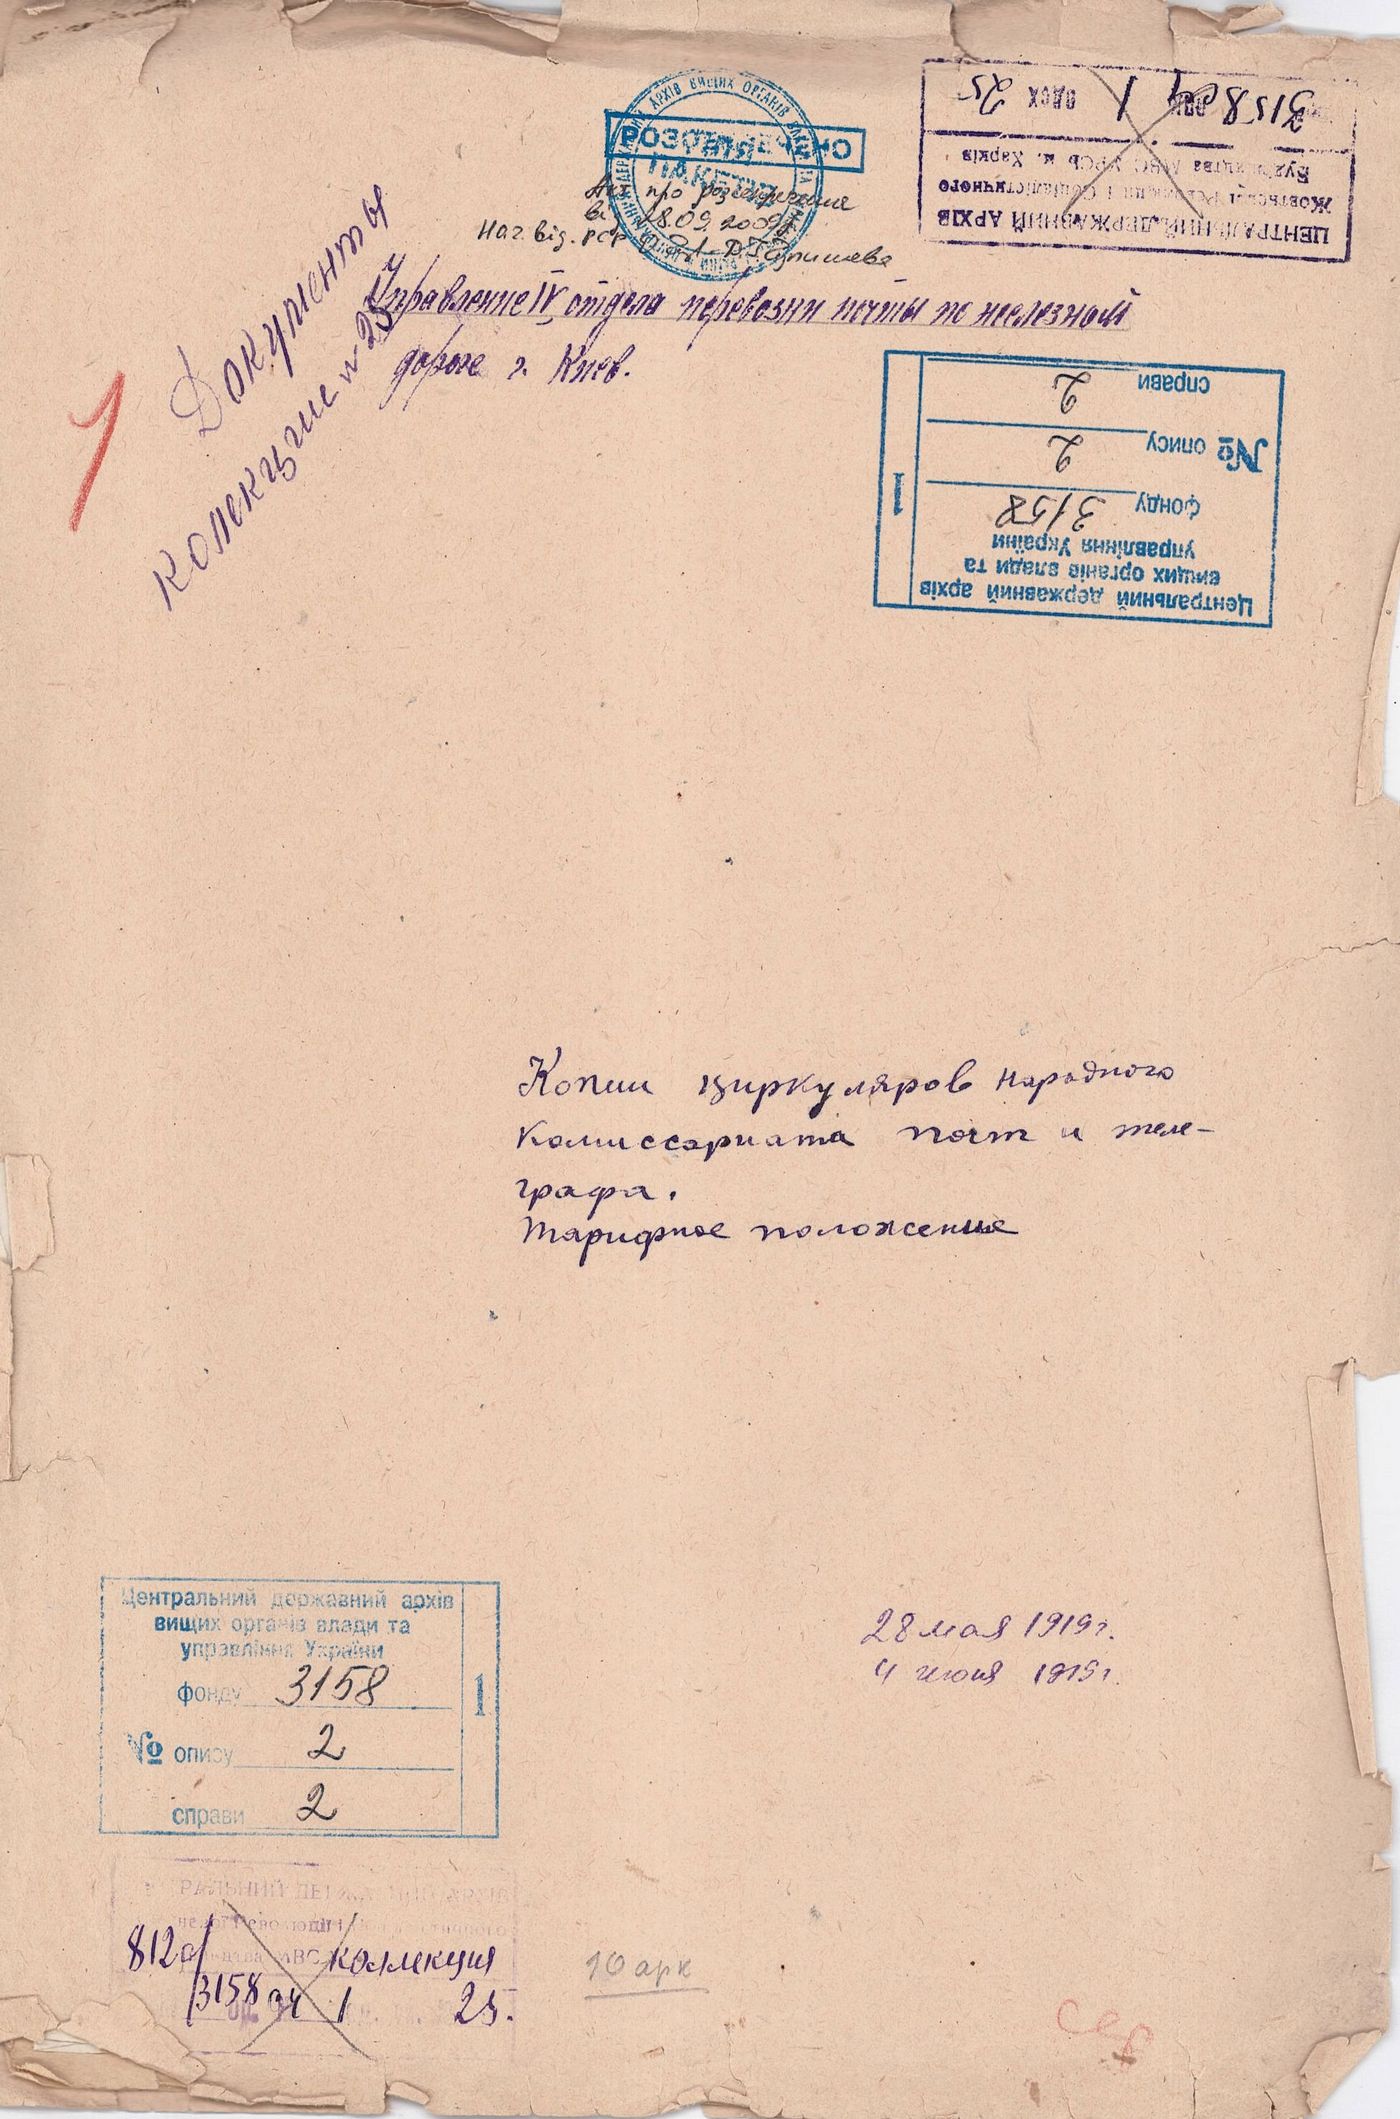 АРХІВ ВИЩИХ ОРГАНІВ
РОЗСЕКРЕЧЕНО
Акт про розсекречення
28.09.2009
Нач. від. РСР
3158
1
25
ЦЕНТРАЛЬНИЙ ДЕРЖАВНИЙ АРХІВ
Жовтневої Революції і Соціалістичного
Будівництва МВС УРСР м. Харків
Документы
Колекции № 25
Управление IV отдела перевозки почты по железной
дороге г. Киев.
Центральний державний архів
вищих органів влади та
управління України
фонду 3158
№ опису 2
справи 2
1
Копии циркуляров народного
комиссариата почт и теле-
графа.
Тарифное положение
28 мая 1919 г.
4 июня 1919 г.
Центральний державний архів
вищих органів влади та
управління України
фонду 3158
№ опису 2
справи 2
1
812 коллекция
3158 1 25.
10 арк